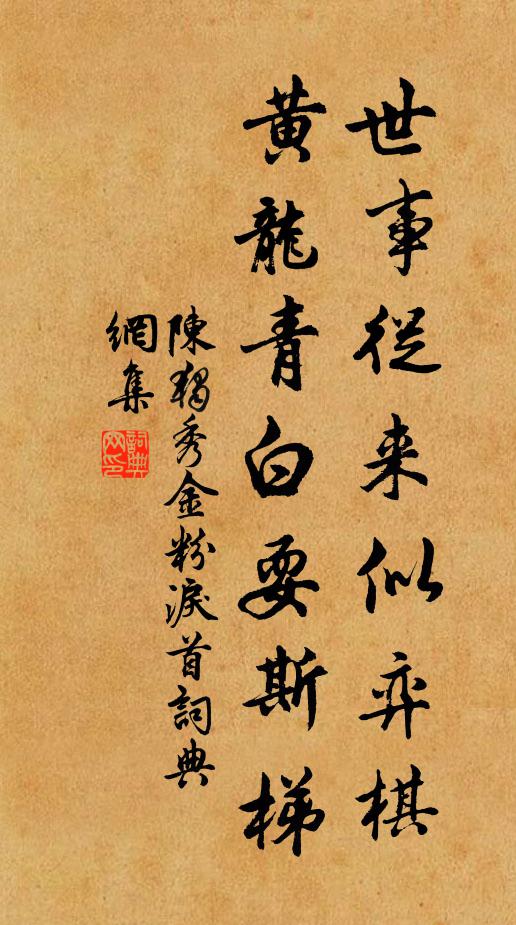 世事從来似弈棋
黃龍青白耍斯梯
陳獨秀金粉淚首詞典
網集
詞典网印